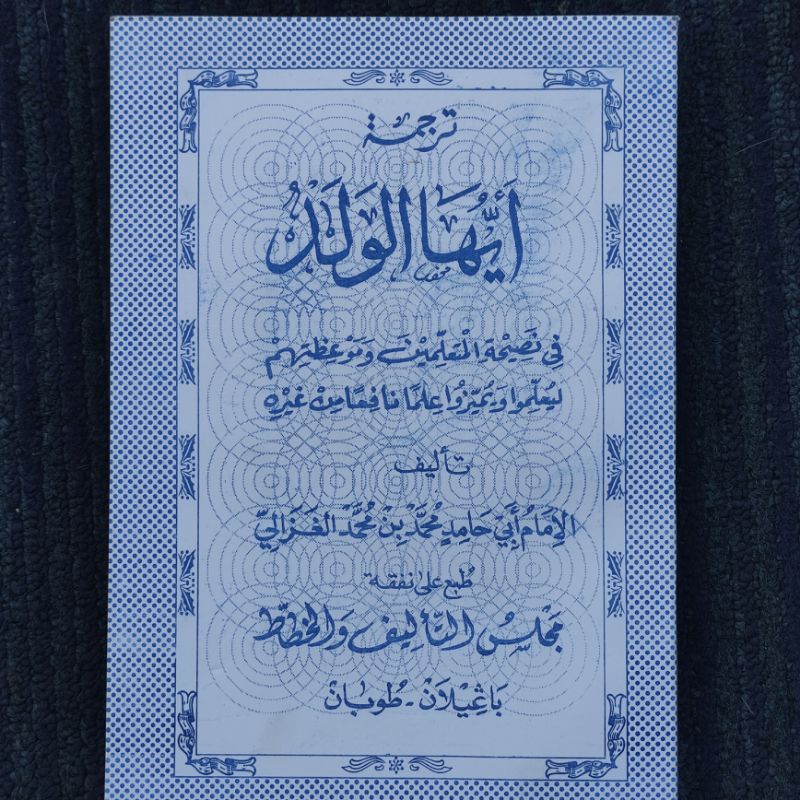 ترجمة
أَيُّهَا الوَلَدُ
فِي نَصِيْحَةِ الْمُتَعَلِّمِيْنَ وَمَوْعِظَتِهِمْ
لِيَعْلَمُوا وَيُمَيِّزُوا عِلْمًا نَافِعًا مِنْ غَيْرِهِ
تأليف
الإِمَامُ أَبِيْ حَامِدٍ مُحَمَّدْ بِنْ مُحَمَّدْ الغَزَالِيّ
طُبع على نفقة
مَجْلِسُ التَّأْلِيْفِ وَالْخَطَّاطْ
بَاڠِيْلَانْ - طُوبَانْ